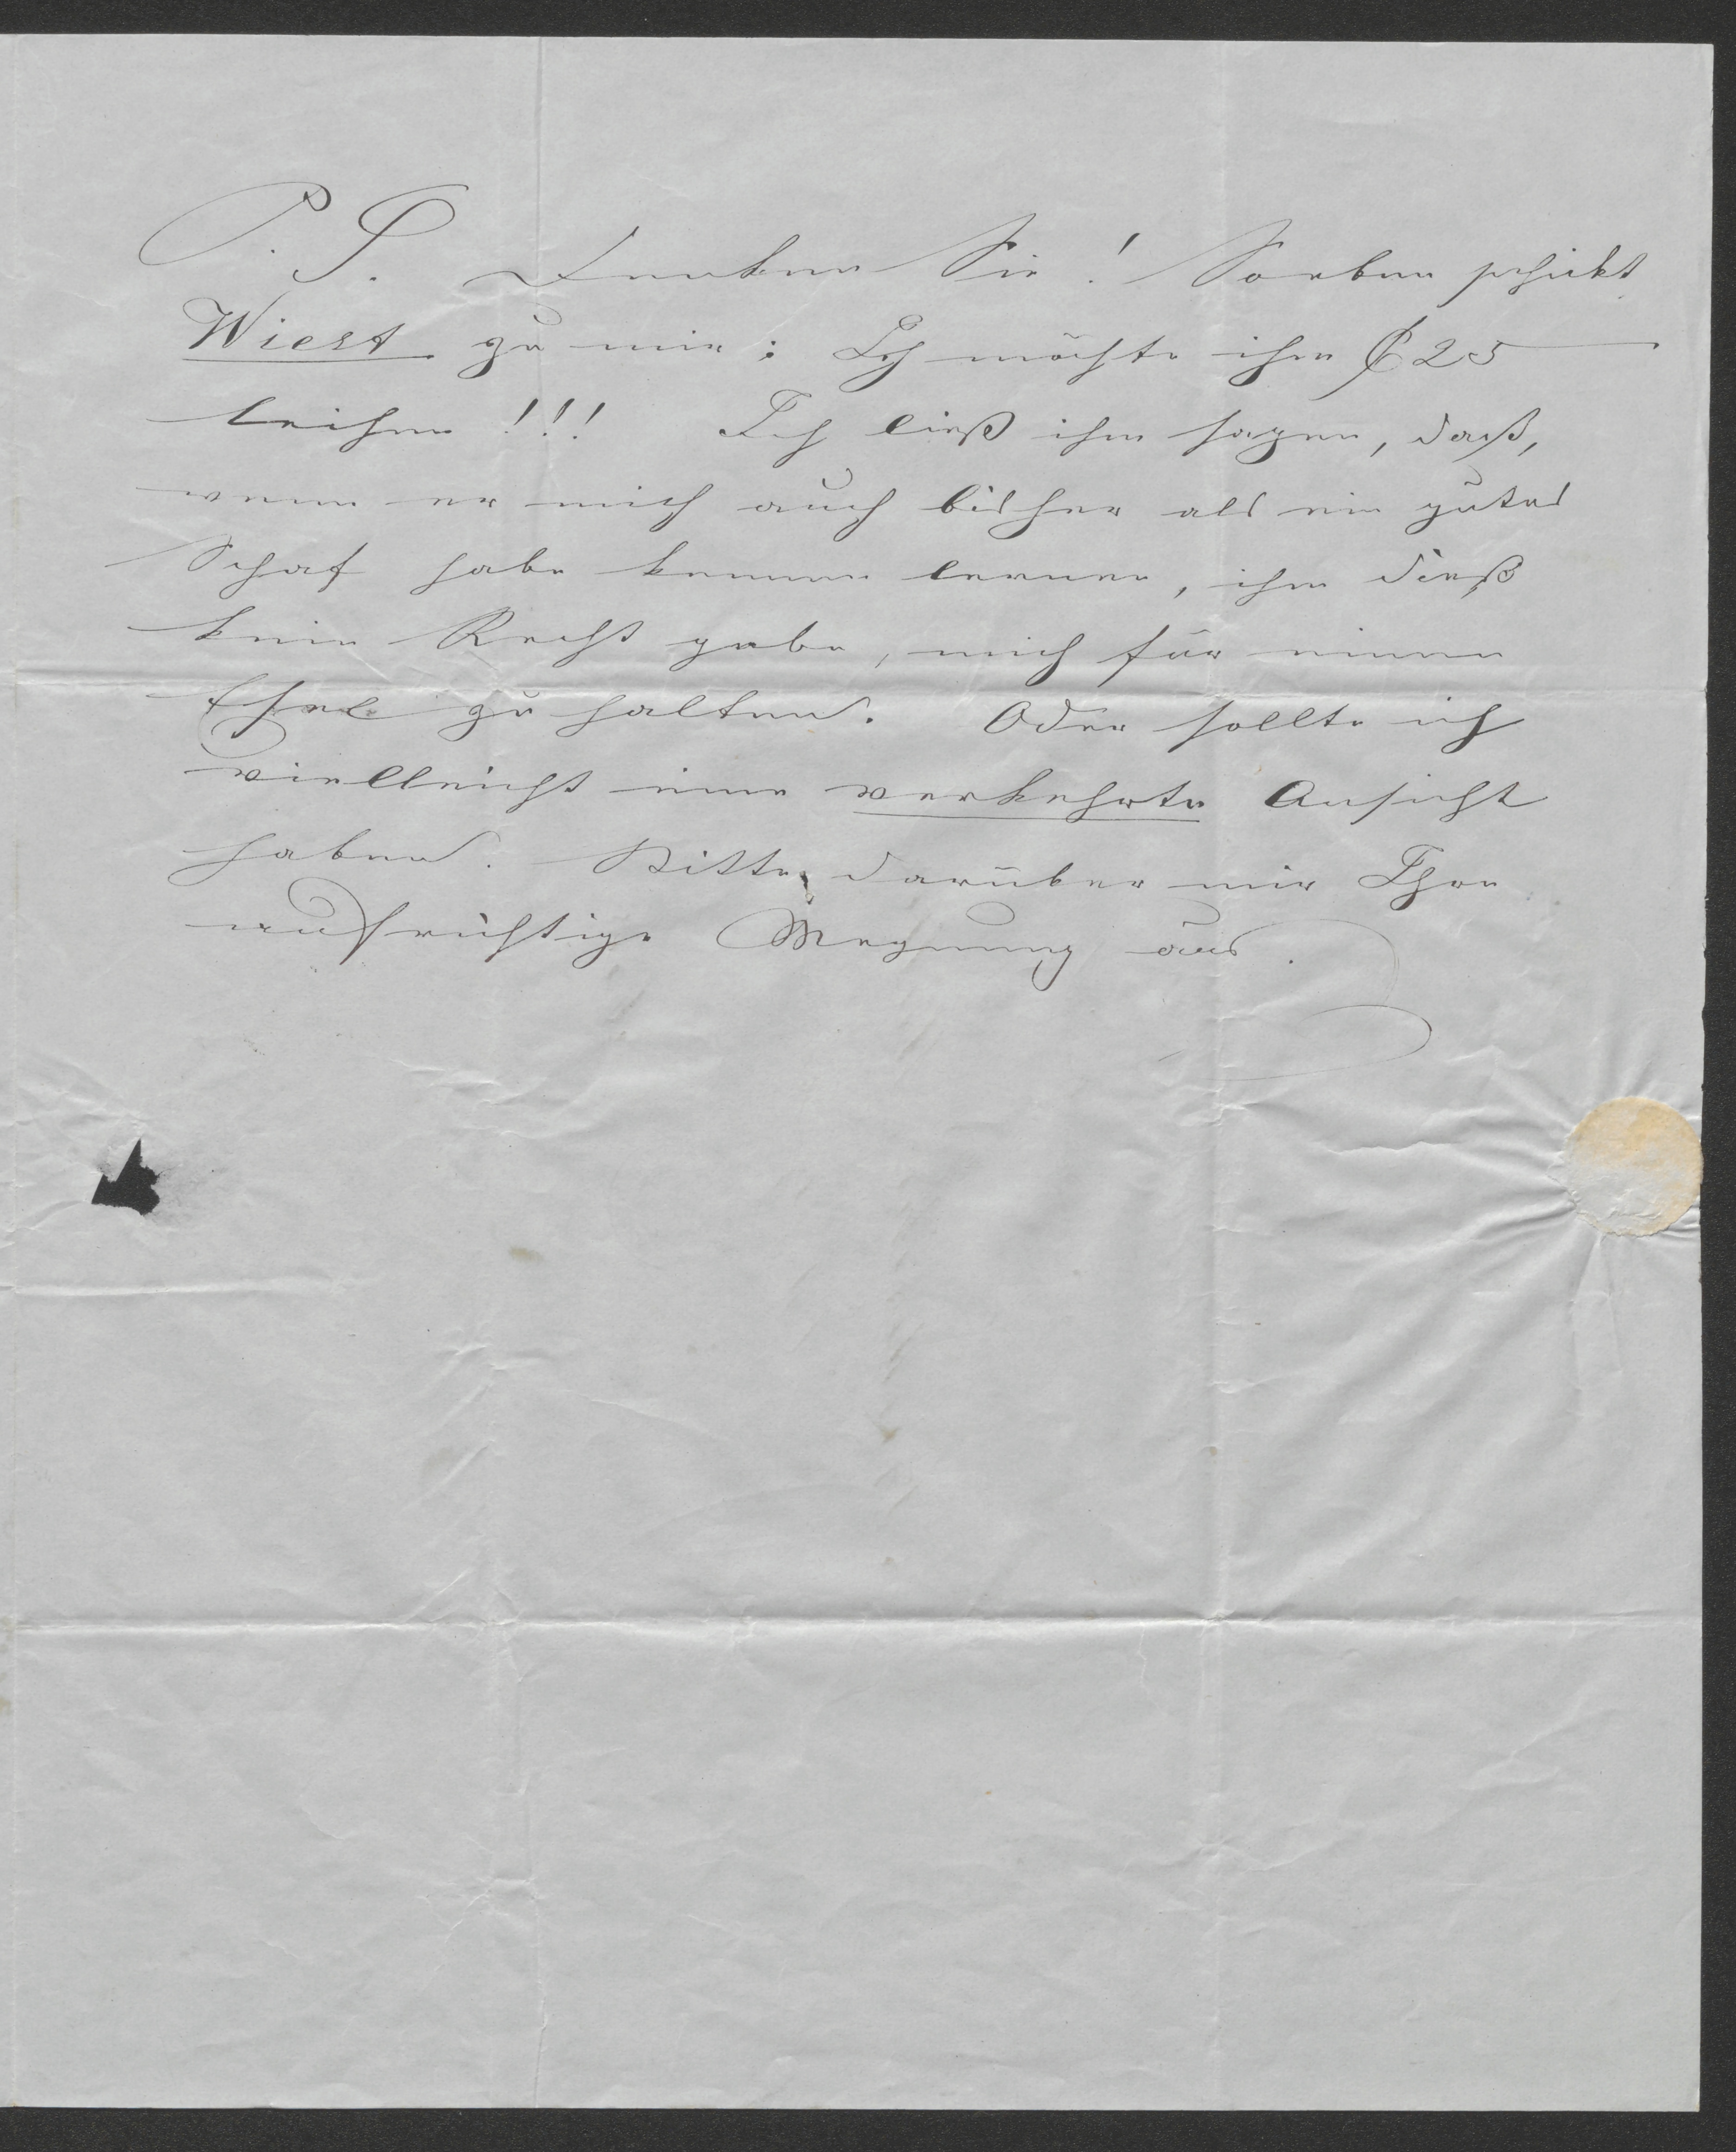 P. S. Denken Sie! Soeben schickt
Wiest zu mir: Ich möchte ihm 25
leihen!!! Ich ließ ihm sagen, daß,
wenn er mich auch bisher als ein gutes
Schaf habe kennen lernen, ihm dieß
kein Recht gebe, mich für einen
Esel zu halten. Oder sollte ich
vielleicht eine verkehrte Ansicht
haben. Bitte, darüber mir Ihre
aufrichtige Meynung aus.